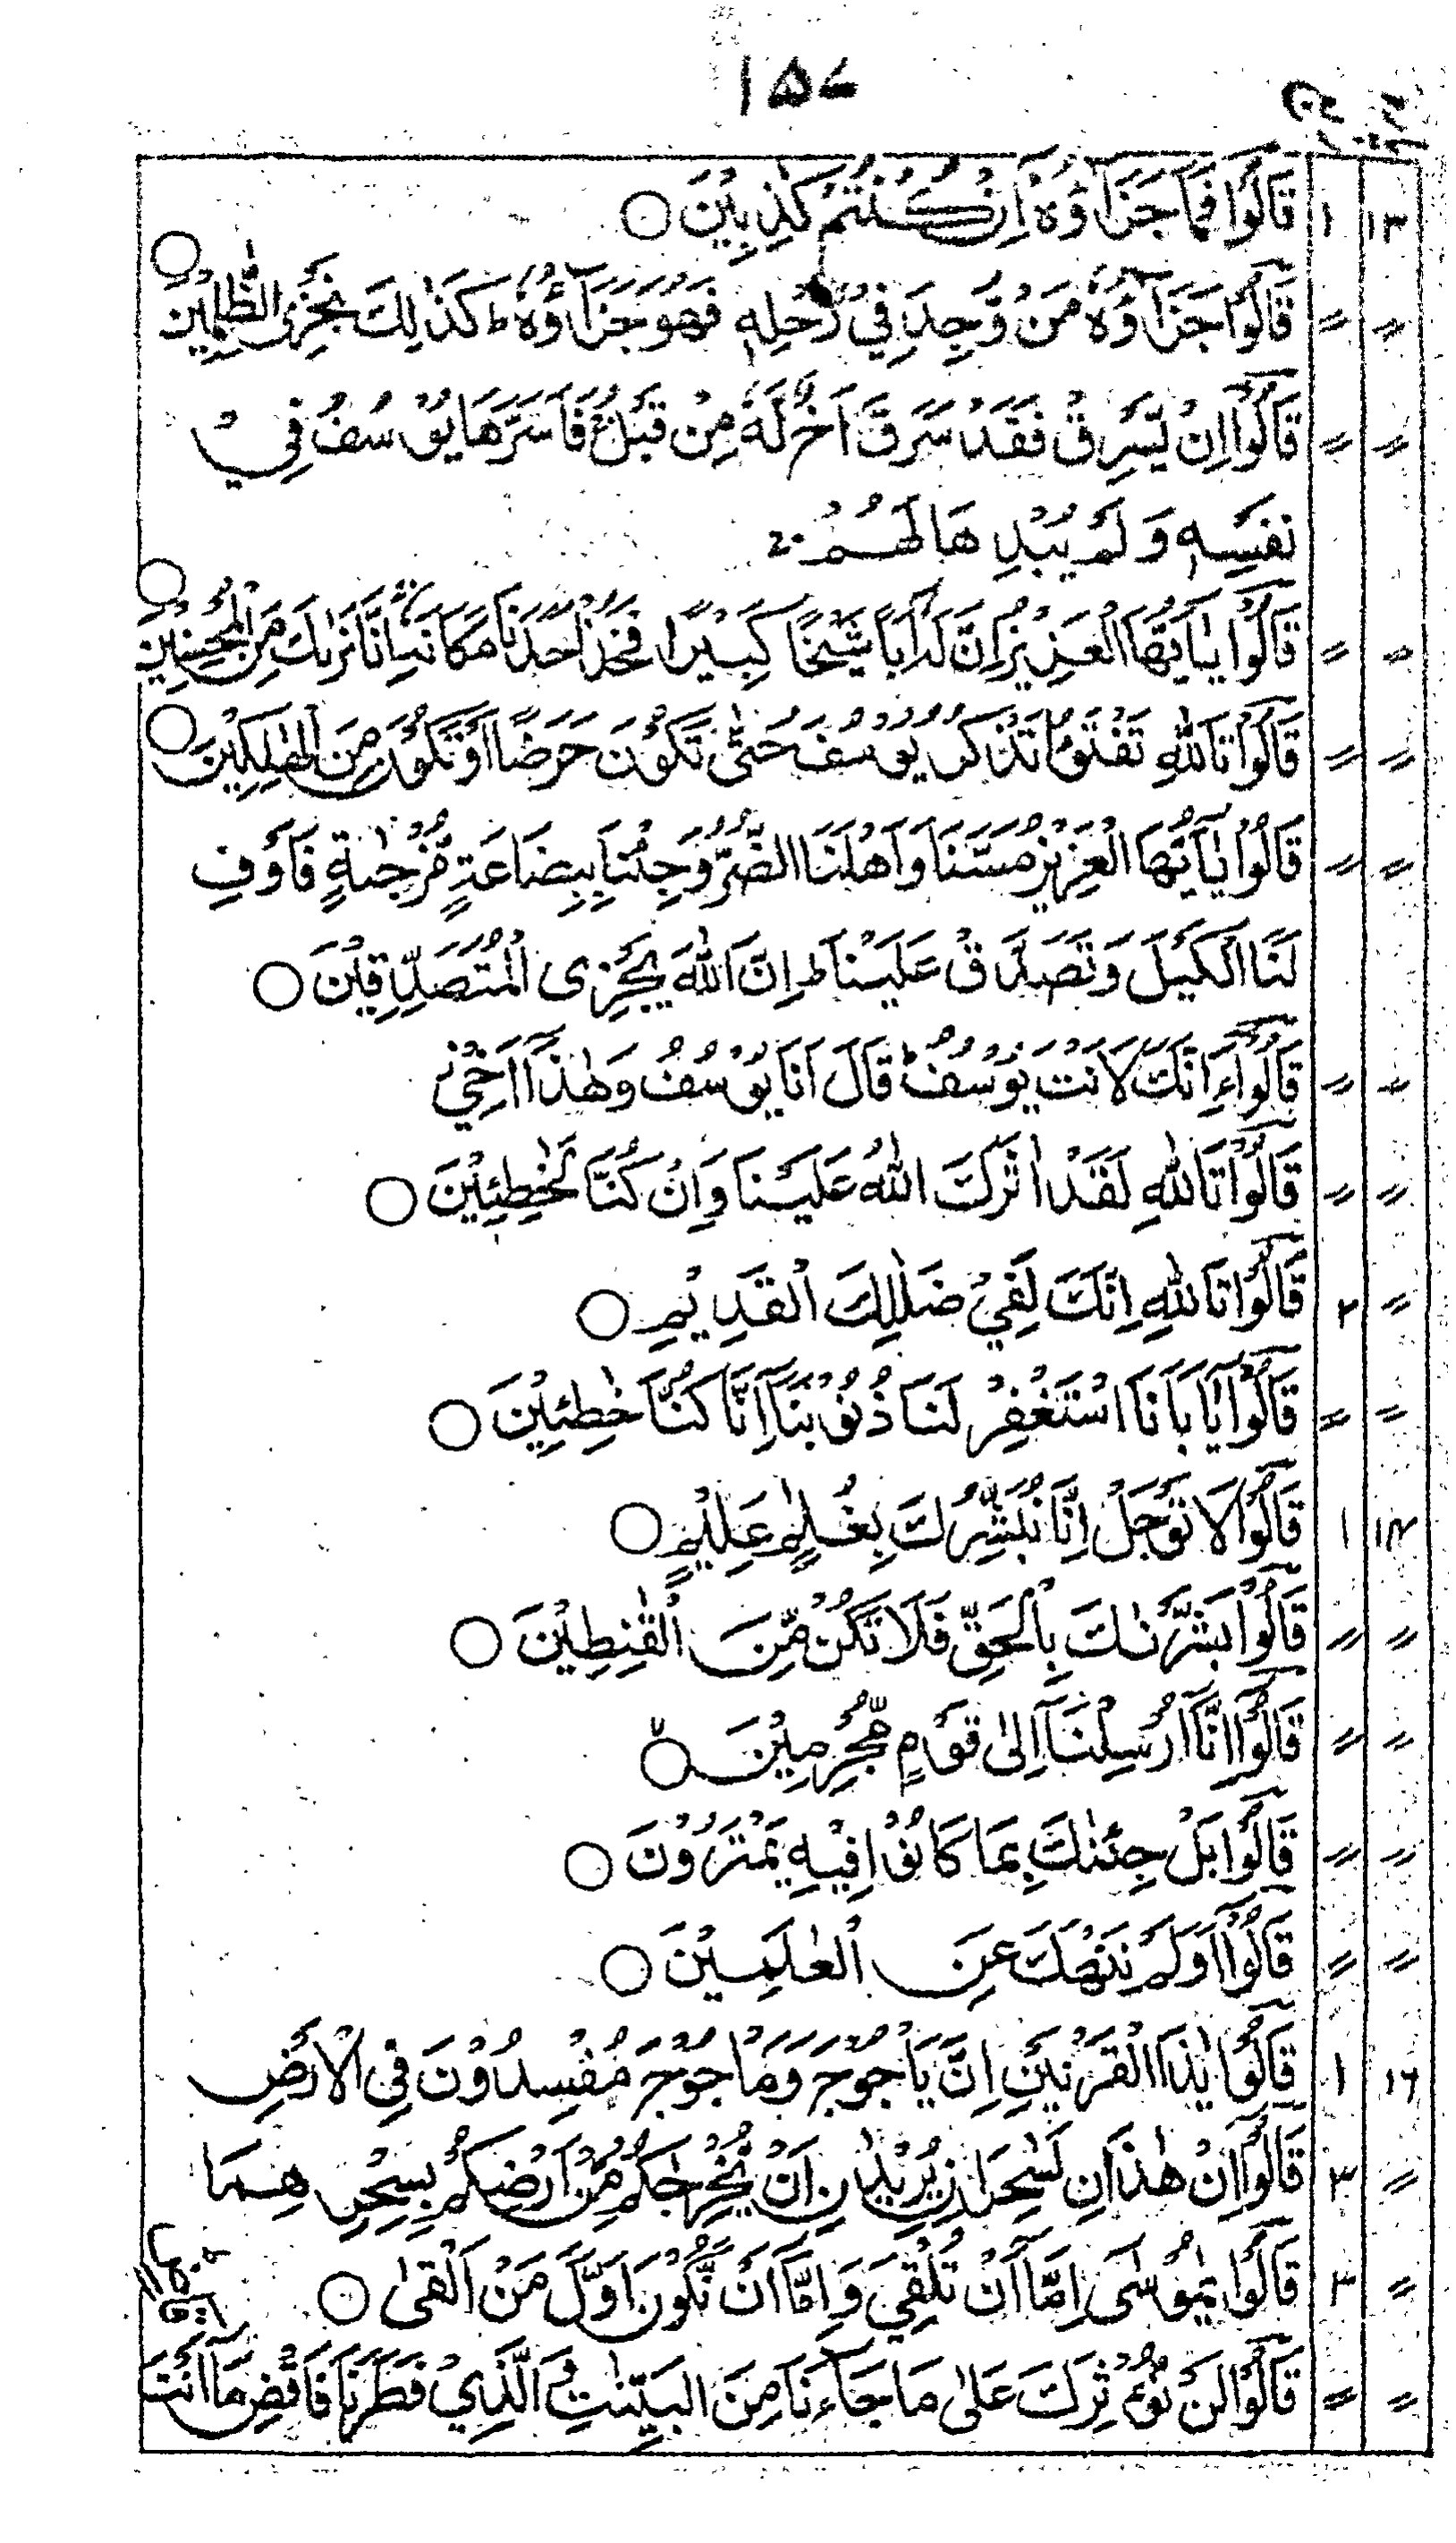 ۱۵۷
۱۳ ۱ قَالُوْا فَمَا جَزَآؤُهٗٓ اِنْ كُنْتُمْ كٰذِبِيْنَ ○
〃 〃 قَالُوْا جَزَآؤُهٗ مَنْ وُّجِدَ فِيْ رَحْلِهٖ فَهُوَ جَزَآؤُهٗ ط كَذٰلِكَ نَجْزِى الظّٰلِمِيْنَ ○
〃 〃 قَالُوْٓا اِنْ يَّسْرِقْ فَقَدْ سَرَقَ اَخٌ لَّهٗ مِنْ قَبْلُ ج فَاَسَرَّهَا يُوْسُفُ فِيْ
نَفْسِهٖ وَلَمْ يُبْدِهَا لَهُمْ ج
〃 〃 قَالُوْا يٰٓاَيُّهَا الْعَزِيْزُ اِنَّ لَهٗٓ اَبًا شَيْخًا كَبِيْرًا فَخُذْ اَحَدَنَا مَكَانَهٗ ج اِنَّا نَرٰىكَ مِنَ الْمُحْسِنِيْنَ ○
〃 〃 قَالُوْا تَاللّٰهِ تَفْتَؤُا تَذْكُرُ يُوْسُفَ حَتّٰى تَكُوْنَ حَرَضًا اَوْ تَكُوْنَ مِنَ الْهٰلِكِيْنَ ○
〃 〃 قَالُوْا يٰٓاَيُّهَا الْعَزِيْزُ مَسَّنَا وَاَهْلَنَا الضُّرُّ وَجِئْنَا بِبِضَاعَةٍ مُّزْجٰىةٍ فَاَوْفِ
لَنَا الْكَيْلَ وَتَصَدَّقْ عَلَيْنَا ط اِنَّ اللّٰهَ يَجْزِى الْمُتَصَدِّقِيْنَ ○
〃 〃 قَالُوْٓا ءَاِنَّكَ لَاَنْتَ يُوْسُفُ ط قَالَ اَنَا يُوْسُفُ وَهٰذَآ اَخِيْ ز
〃 〃 قَالُوْا تَاللّٰهِ لَقَدْ اٰثَرَكَ اللّٰهُ عَلَيْنَا وَاِنْ كُنَّا لَخٰطِئِيْنَ ○
〃 ۲ قَالُوْا تَاللّٰهِ اِنَّكَ لَفِيْ ضَلٰلِكَ الْقَدِيْمِ ○
〃 〃 قَالُوْا يٰٓاَبَانَا اسْتَغْفِرْ لَنَا ذُنُوْبَنَآ اِنَّا كُنَّا خٰطِئِيْنَ ○
۱۴ ۱ قَالُوْا لَا تَوْجَلْ اِنَّا نُبَشِّرُكَ بِغُلٰمٍ عَلِيْمٍ ○
〃 〃 قَالُوْا بَشَّرْنٰكَ بِالْحَقِّ فَلَا تَكُنْ مِّنَ الْقٰنِطِيْنَ ○
〃 〃 قَالُوْٓا اِنَّآ اُرْسِلْنَآ اِلٰى قَوْمٍ مُّجْرِمِيْنَ ○
〃 〃 قَالُوْا بَلْ جِئْنٰكَ بِمَا كَانُوْا فِيْهِ يَمْتَرُوْنَ ○
〃 〃 قَالُوْٓا اَوَلَمْ نَنْهَكَ عَنِ الْعٰلَمِيْنَ ○
۱۶ ۱ قَالُوْا يٰذَا الْقَرْنَيْنِ اِنَّ يَاْجُوْجَ وَمَاْجُوْجَ مُفْسِدُوْنَ فِى الْاَرْضِ
〃 ۳ قَالُوْٓا اِنْ هٰذٰنِ لَسٰحِرٰنِ يُرِيْدٰنِ اَنْ يُّخْرِجٰكُمْ مِّنْ اَرْضِكُمْ بِسِحْرِهِمَا
〃 ۳ قَالُوْا يٰمُوْسٰٓى اِمَّآ اَنْ تُلْقِيَ وَاِمَّآ اَنْ نَّكُوْنَ اَوَّلَ مَنْ اَلْقٰى ○
〃 〃 قَالُوْا لَنْ نُّؤْثِرَكَ عَلٰى مَا جَآءَنَا مِنَ الْبَيِّنٰتِ وَالَّذِيْ فَطَرَنَا فَاقْضِ مَآ اَنْتَ